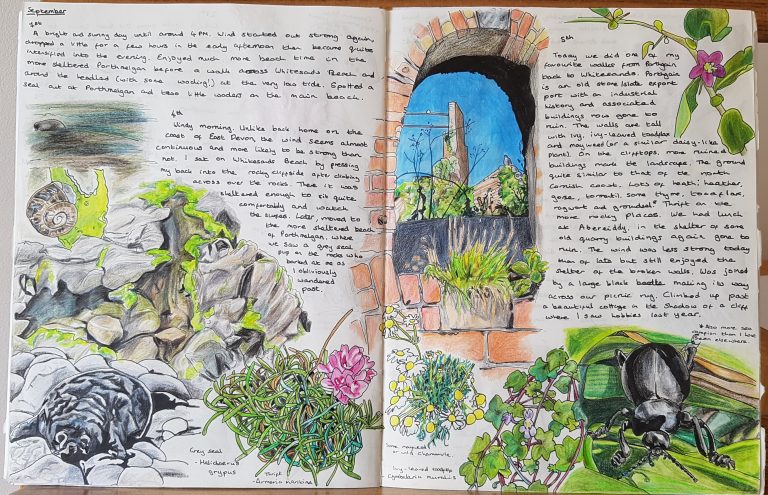 September
1st
A bright and sunny day until around 4PM. Wind started out strong again,
dropped a little for a few hours in the early afternoon then became quite
intensified into the evening. Enjoyed much more beach time in the
more sheltered Porthmelgan before a walk across Whitesands Beach and
around the headland (with some wading!) at the very low tide. Spotted a
seal out at Porthmelgan and two little waders on the main beach.
4th
Windy morning. Unlike back home on the
coast of East Devon the wind seems almost
continuous and more likely to be strong than
not. I sat on Whitesands Beach by pressing
my back into the rocky cliffside after climbing
across over the rocks. There it was
sheltered enough to sit quite
comfortably and watch
the surfers. Later, moved to
the more sheltered beach
of Porthmelgan where
we saw a grey seal
pup on the rocks who
barked at me as
I obliviously
wandered
past.
Grey seal
- Halichoerus
grypus
Thrift
- Armeria maritima
5th
Today we did one of my
favourite walks from Porthgain
back to Whitesands. Porthgain
is an old stone/slate export
port with an industrial
history and associated
buildings now gone to
ruin. The walls are tall
with ivy, ivy-leaved toadflax
and mayweed (or a similar daisy-like
plant). On the clifftops, more ruined
buildings mark the landscape. The ground
quite similar to that of the north
Cornish coast. Lots of heath, heather,
gorse, tormentil, some thyme, toadflax,
ragwort and groundsel.* Thrift on the
more rocky places. We had lunch
at Abereiddy, in the shelter of some
old quarry buildings again gone to
ruin. The wind was less strong today
than of late but still enjoyed the
shelter of the broken walls. Was joined
by a large black beetle making its way
across our picnic rug. Climbed up past
a beautiful cottage in the shadow of a cliff
where I saw hobbies last year.
* Also more sea
campion than I have
seen elsewhere
Some mayweed
or wild chamomile.
Ivy-leaved toadflax
Cymbalaria muralis